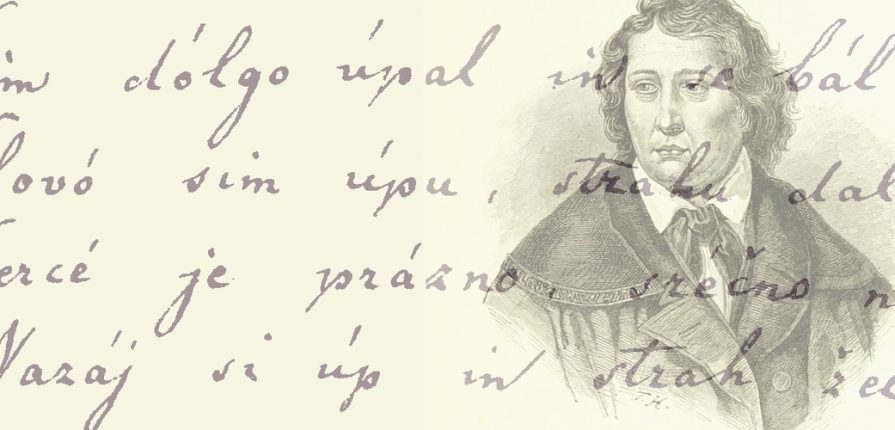 im dólgo úpal in se bál
lovó sim úpu, strahu dal
ercé je prázno, sréčno n
Nazáj si úp in strah žel
T.H.